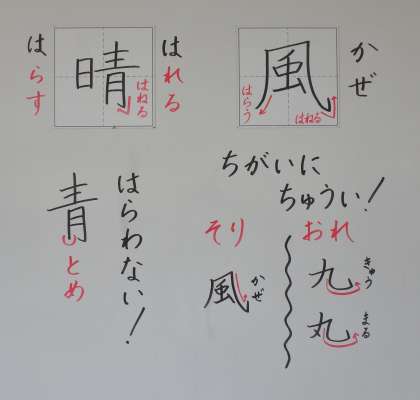 かぜ
風
はらう
はねる
はれる
はらす
晴
はねる
ちがいに
ちゅうい!
おれ
九
きゅう
丸
まる
そり
風
かぜ
はらわない!
青
とめ